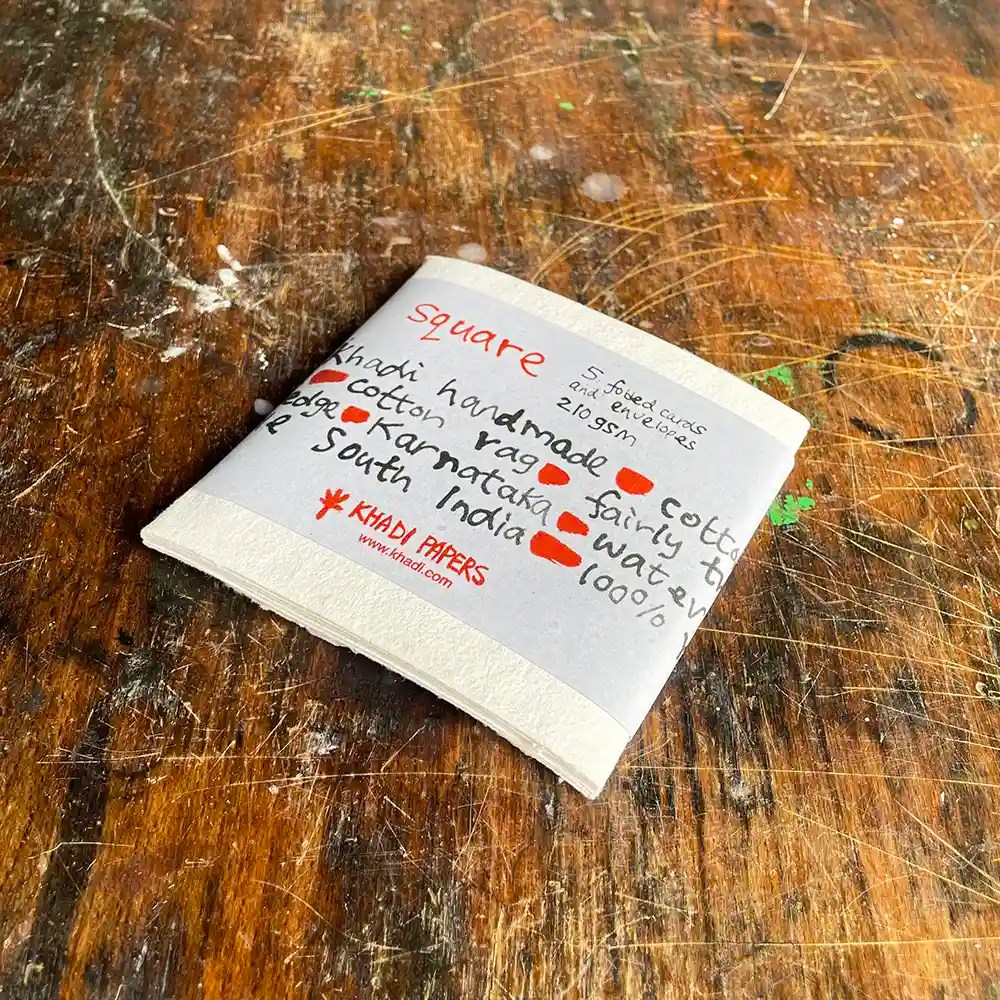 square
5 folded cards
and envelopes
210 gsm
khadi handmade cotto
cotton rag fairly t
edge Karnataka water
e South India 100%
KHADI PAPERS
www.khadi.com